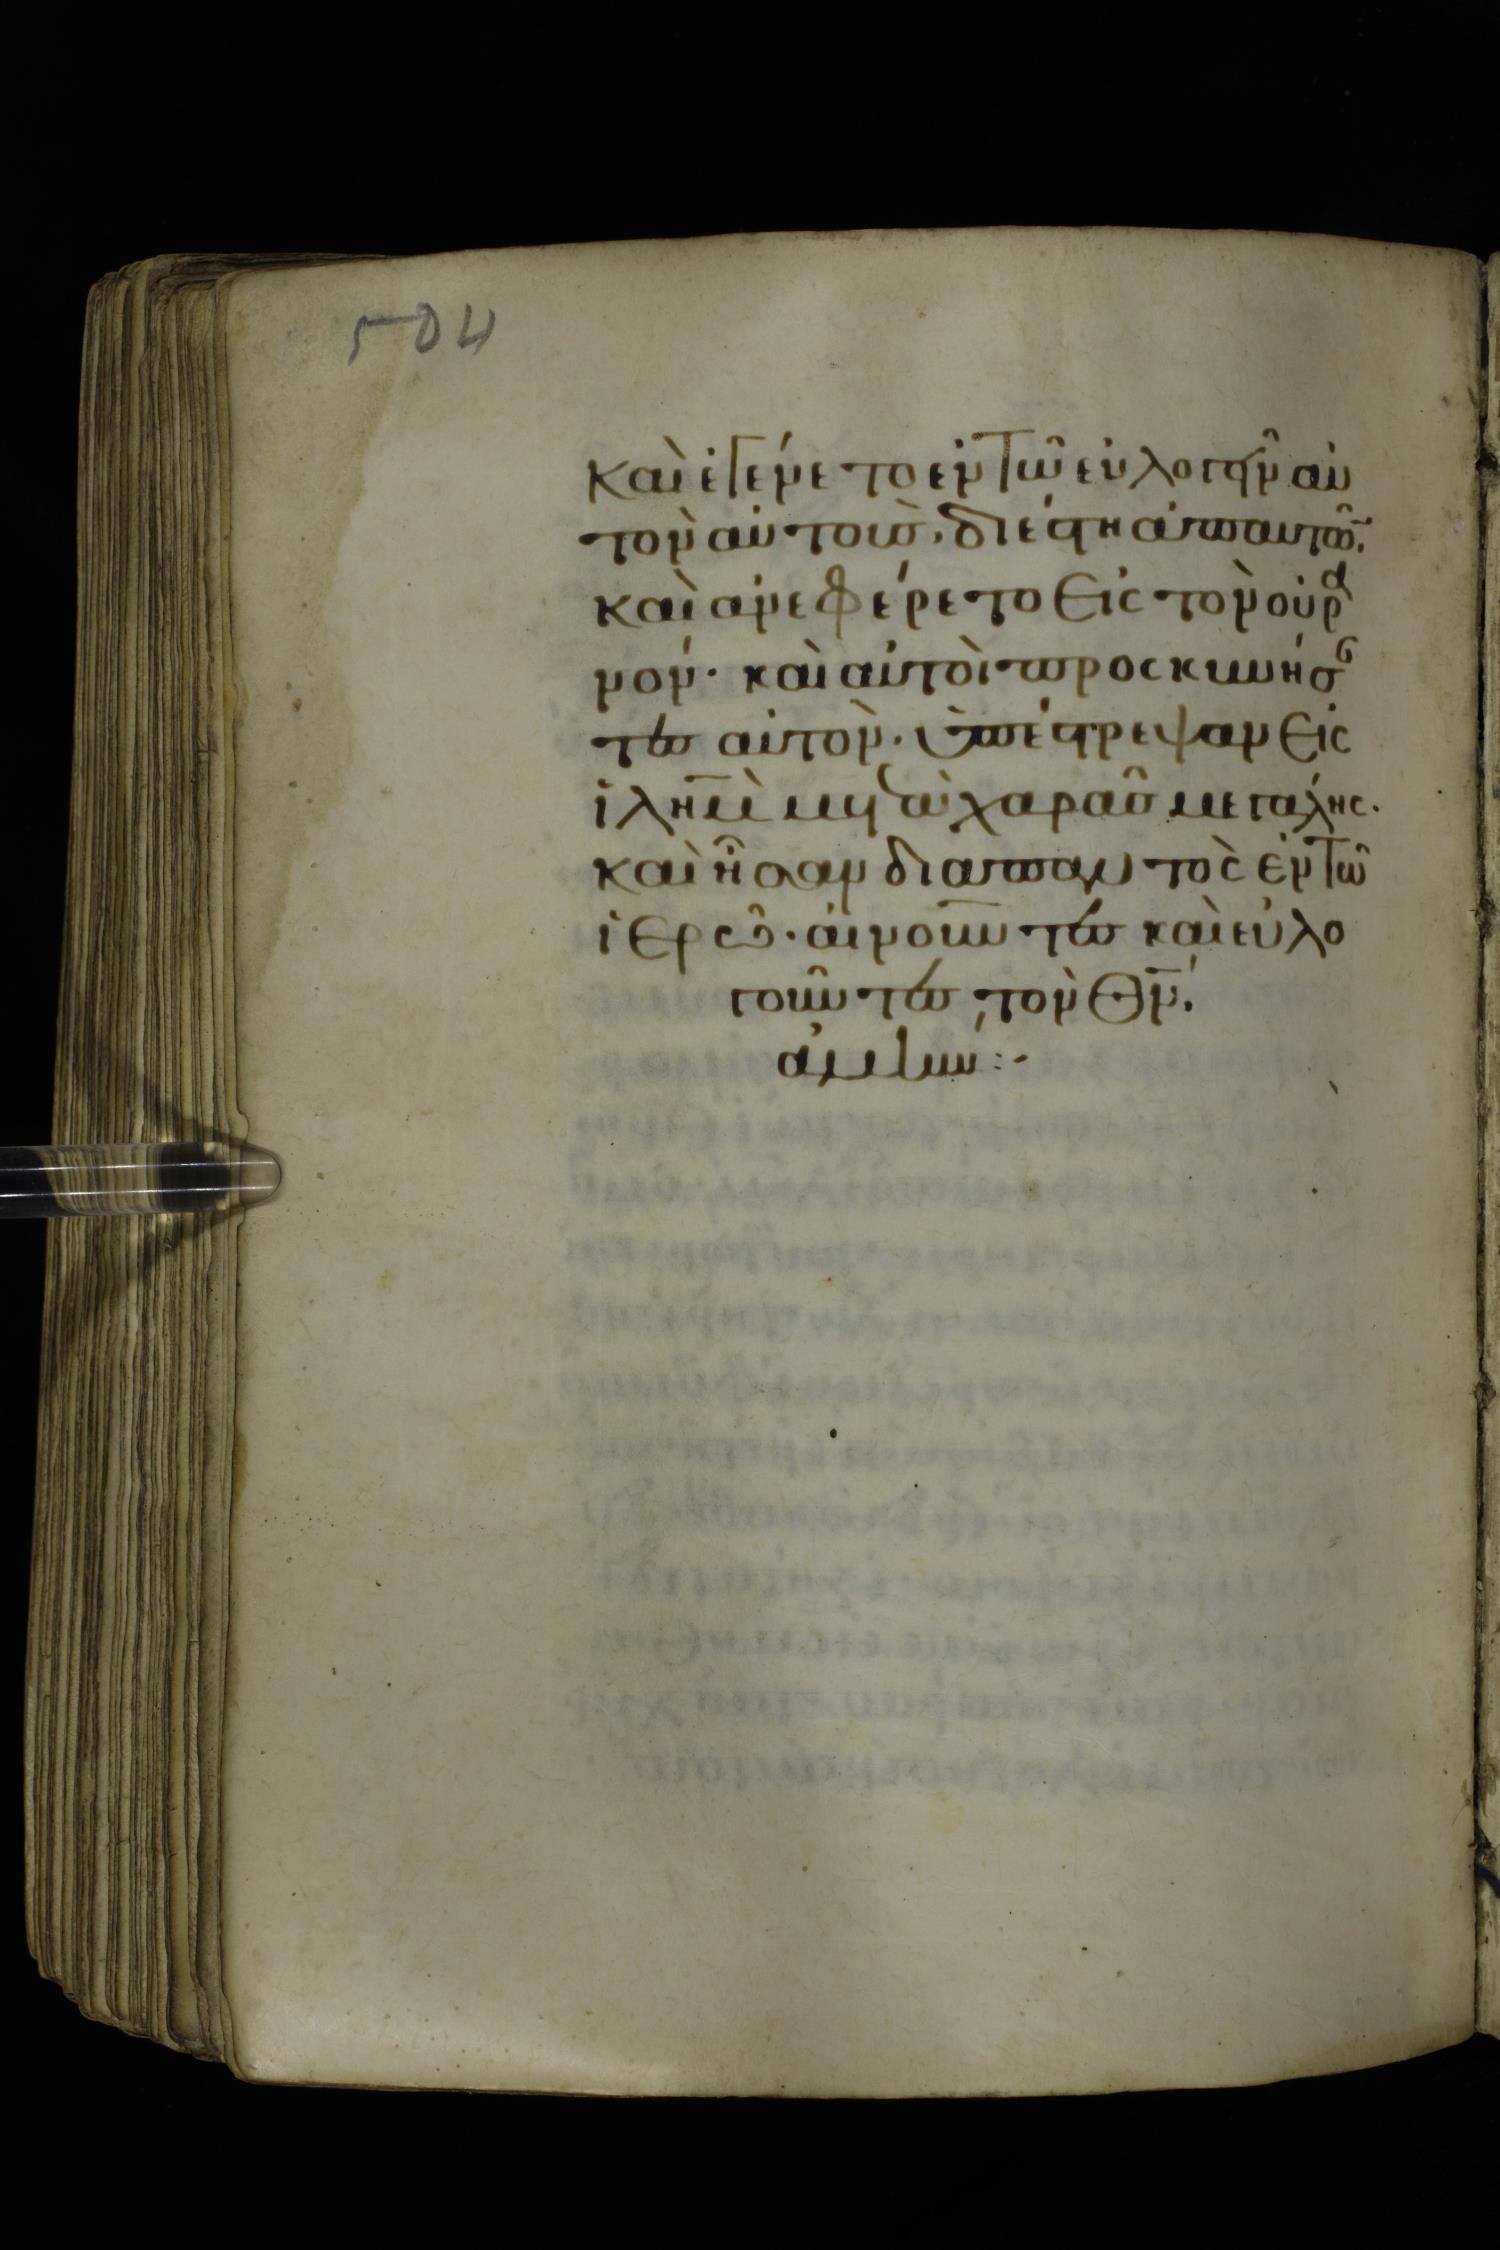 504
καὶ ἐγένετο ἐν τῶ εὐλογεῖν αὐ
τὸν αὐτοὺσ, διέστη ἀπ αυτῶ̣ν.
καὶ ἀνεφέρετο εἰς τὸν οὐρα
νόν. καὶ αὐτοὶ προσκυνήσαν
τεσ αὐτὸν. ὑπέστρεψαν εἰς
ἱλη̅μ̀ μετὰ χαρᾶσ μεγάλης.
καὶ ἦσαν διαπαντὸς ἐν τῶ
ἱερῶ. αἰνοῦντεσ καὶ εὐλο
γοῦντεσ τὸν θ̅ν̅.
ἀμήν:-